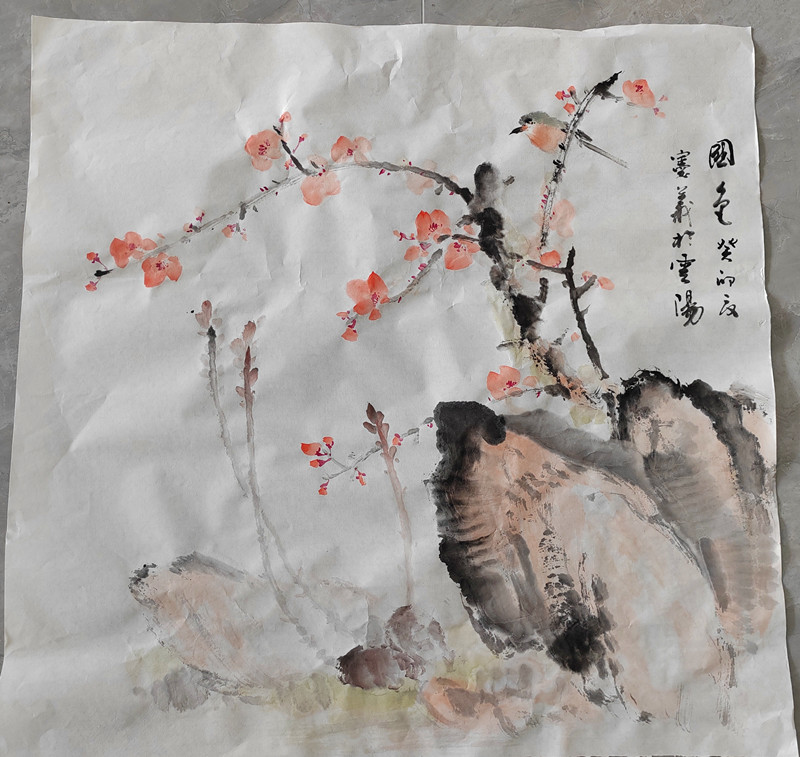 國色癸卯夏
憲義於雲陽